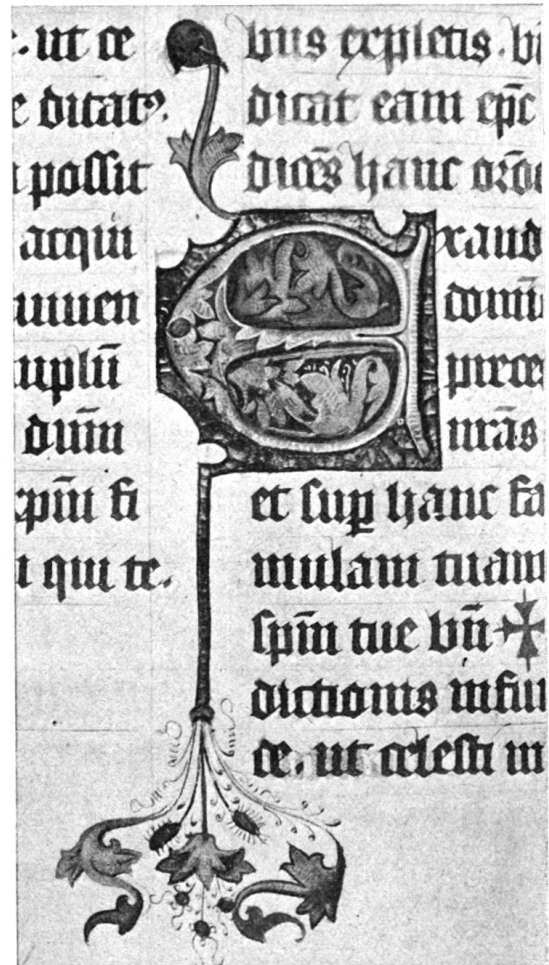 . ut ce
e dicat⁹.
possit
acqui
uiuen
uplū
dum̄
xpm̄ fi
qui te.
bus expletis. bn̄
dicat eam ep̄c
dicēs hanc or̄o
Exaud
domi
preces
nrās
et suꝑ hanc fa
mulam tuam
sp̄m tue bn̄ ✠
dictionis infun
de. ut celesti m